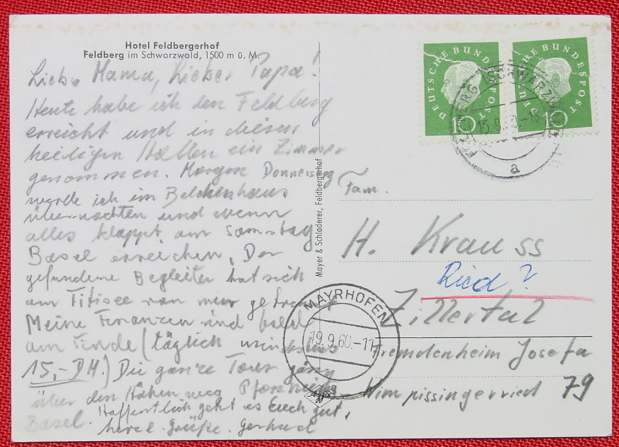 Hotel Feldbergerhof
Feldberg im Schwarzwald, 1500 m ü. M.
Liebe Mama, Lieber Papa!
Heute habe ich den Feldberg
erreicht und in diesen
heiligen Hallen ein Zimmer
genommen. Morgen Donnerstag
werde ich im Belchenhaus
übernachten und wenn
alles klappt am Samstag
Basel erreichen. Der
gefundene Begleiter hat sich
am Titisee von mir getrennt
Meine Finanzen sind bald
am Ende (täglich mindestens
15,- DM.) Die ganze Tour ging
über den Höhenweg Pforzheim
Basel. Hoffentlich geht es Euch gut,
herzl. Grüße Gerhard
Mayer & Schloderer, Feldbergerhof
DEUTSCHE BUNDESPOST
10
DEUTSCHE BUNDESPOST
10
FELDBERG (SCHWARZW
a
Fam.
H. Krauss
Ried?
Zillertal
Fremdenheim Josefa
Wimpissingerried 79
MAYRHOFEN
19.9.60.-11